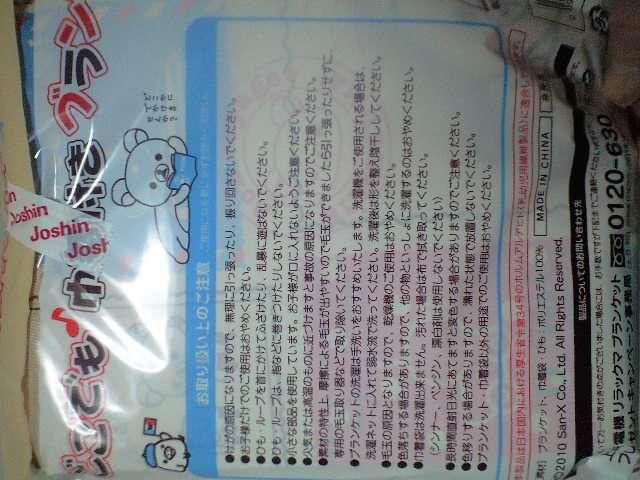 どこでも♪巾着付きブラン
どこでも
でかける
せんから
Joshin
Joshin
Josh
お取り扱い上のご注意
●けがの原因になりますので、無理に引っ張ったり、振り回さないでください。
●お子様だけでのご使用はおやめください。
●ひも・ループを首にかけてふざけたり、乱暴に遊ばないでください。
●ひも・ループは、指などに巻きつけたりしないでください。
●小さな部品を使用しています。お子様が口に入れないようご注意ください。
●火気または高温のものに近づけますと事故の原因になりますのでご注意ください。
●素材の特性上、摩擦による毛玉が出やすいので毛玉ができましたら引っ張ったりせずに、
専用の毛玉取り器などで取り除いてください。
●ブランケットの洗濯は手洗いをおすすめいたします。洗濯機をご使用される場合は、
洗濯ネットに入れて弱水流で洗ってください。洗濯後は形を整え陰干ししてください。
●毛玉の原因となりますので、乾燥機のご使用はおやめください。
●色落ちする場合がありますので、他の物といっしょに洗濯するのはおやめください。
●巾着袋は洗濯出来ません。汚れた場合は布で拭き取ってください。
(シンナー、ベンジン、漂白剤は使用しないでください)
●長時間直射日光にあたりますと変色する場合がありますのでご注意ください。
●色移りする場合がありますので、濡れた状態で放置しないでください。
●ブランケット・巾着袋以外の用途でのご使用はおやめください。
本製品は日本国内における厚生省令第34号のホルムアルデヒド(乳幼児用繊維製品)に適合し
素材 ブランケット、巾着袋、ひも:ポリエステル100% MADE IN CHINA
©2010 San-X Co., Ltd. All Rights Reserved.
製品についてのお問い合わせ先
0120-630
電機 リラックマ ブランケット
プレゼントキャンペーン事務局